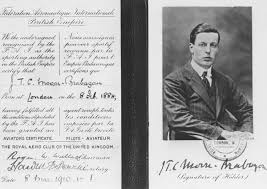 Fédération Aéronautique Internationale
British Empire
We the undersigned
recognised by the
F.A.I. as the
sporting authority
in the
British Empire
certify that
Nous soussignés
pouvoir sportif
reconnu par la
F.A.I. pour
l'Empire Britannique
certifions que
J.T.C. Moore-Brabazon
Born London on the 8 Feb. 1884
having fulfilled all
the conditions
stipulated by the
F.A.I. has
been granted an
AVIATOR'S CERTIFICATE
ayant rempli toutes
les conditions
imposées par la
F.A.I. a été
breveté
PILOTE-AVIATEUR
THE ROYAL AERO CLUB OF THE UNITED KINGDOM
Date 8 Mar. 1910. No. 1
J.T.C. Moore-Brabazon
(Signature of Holder)